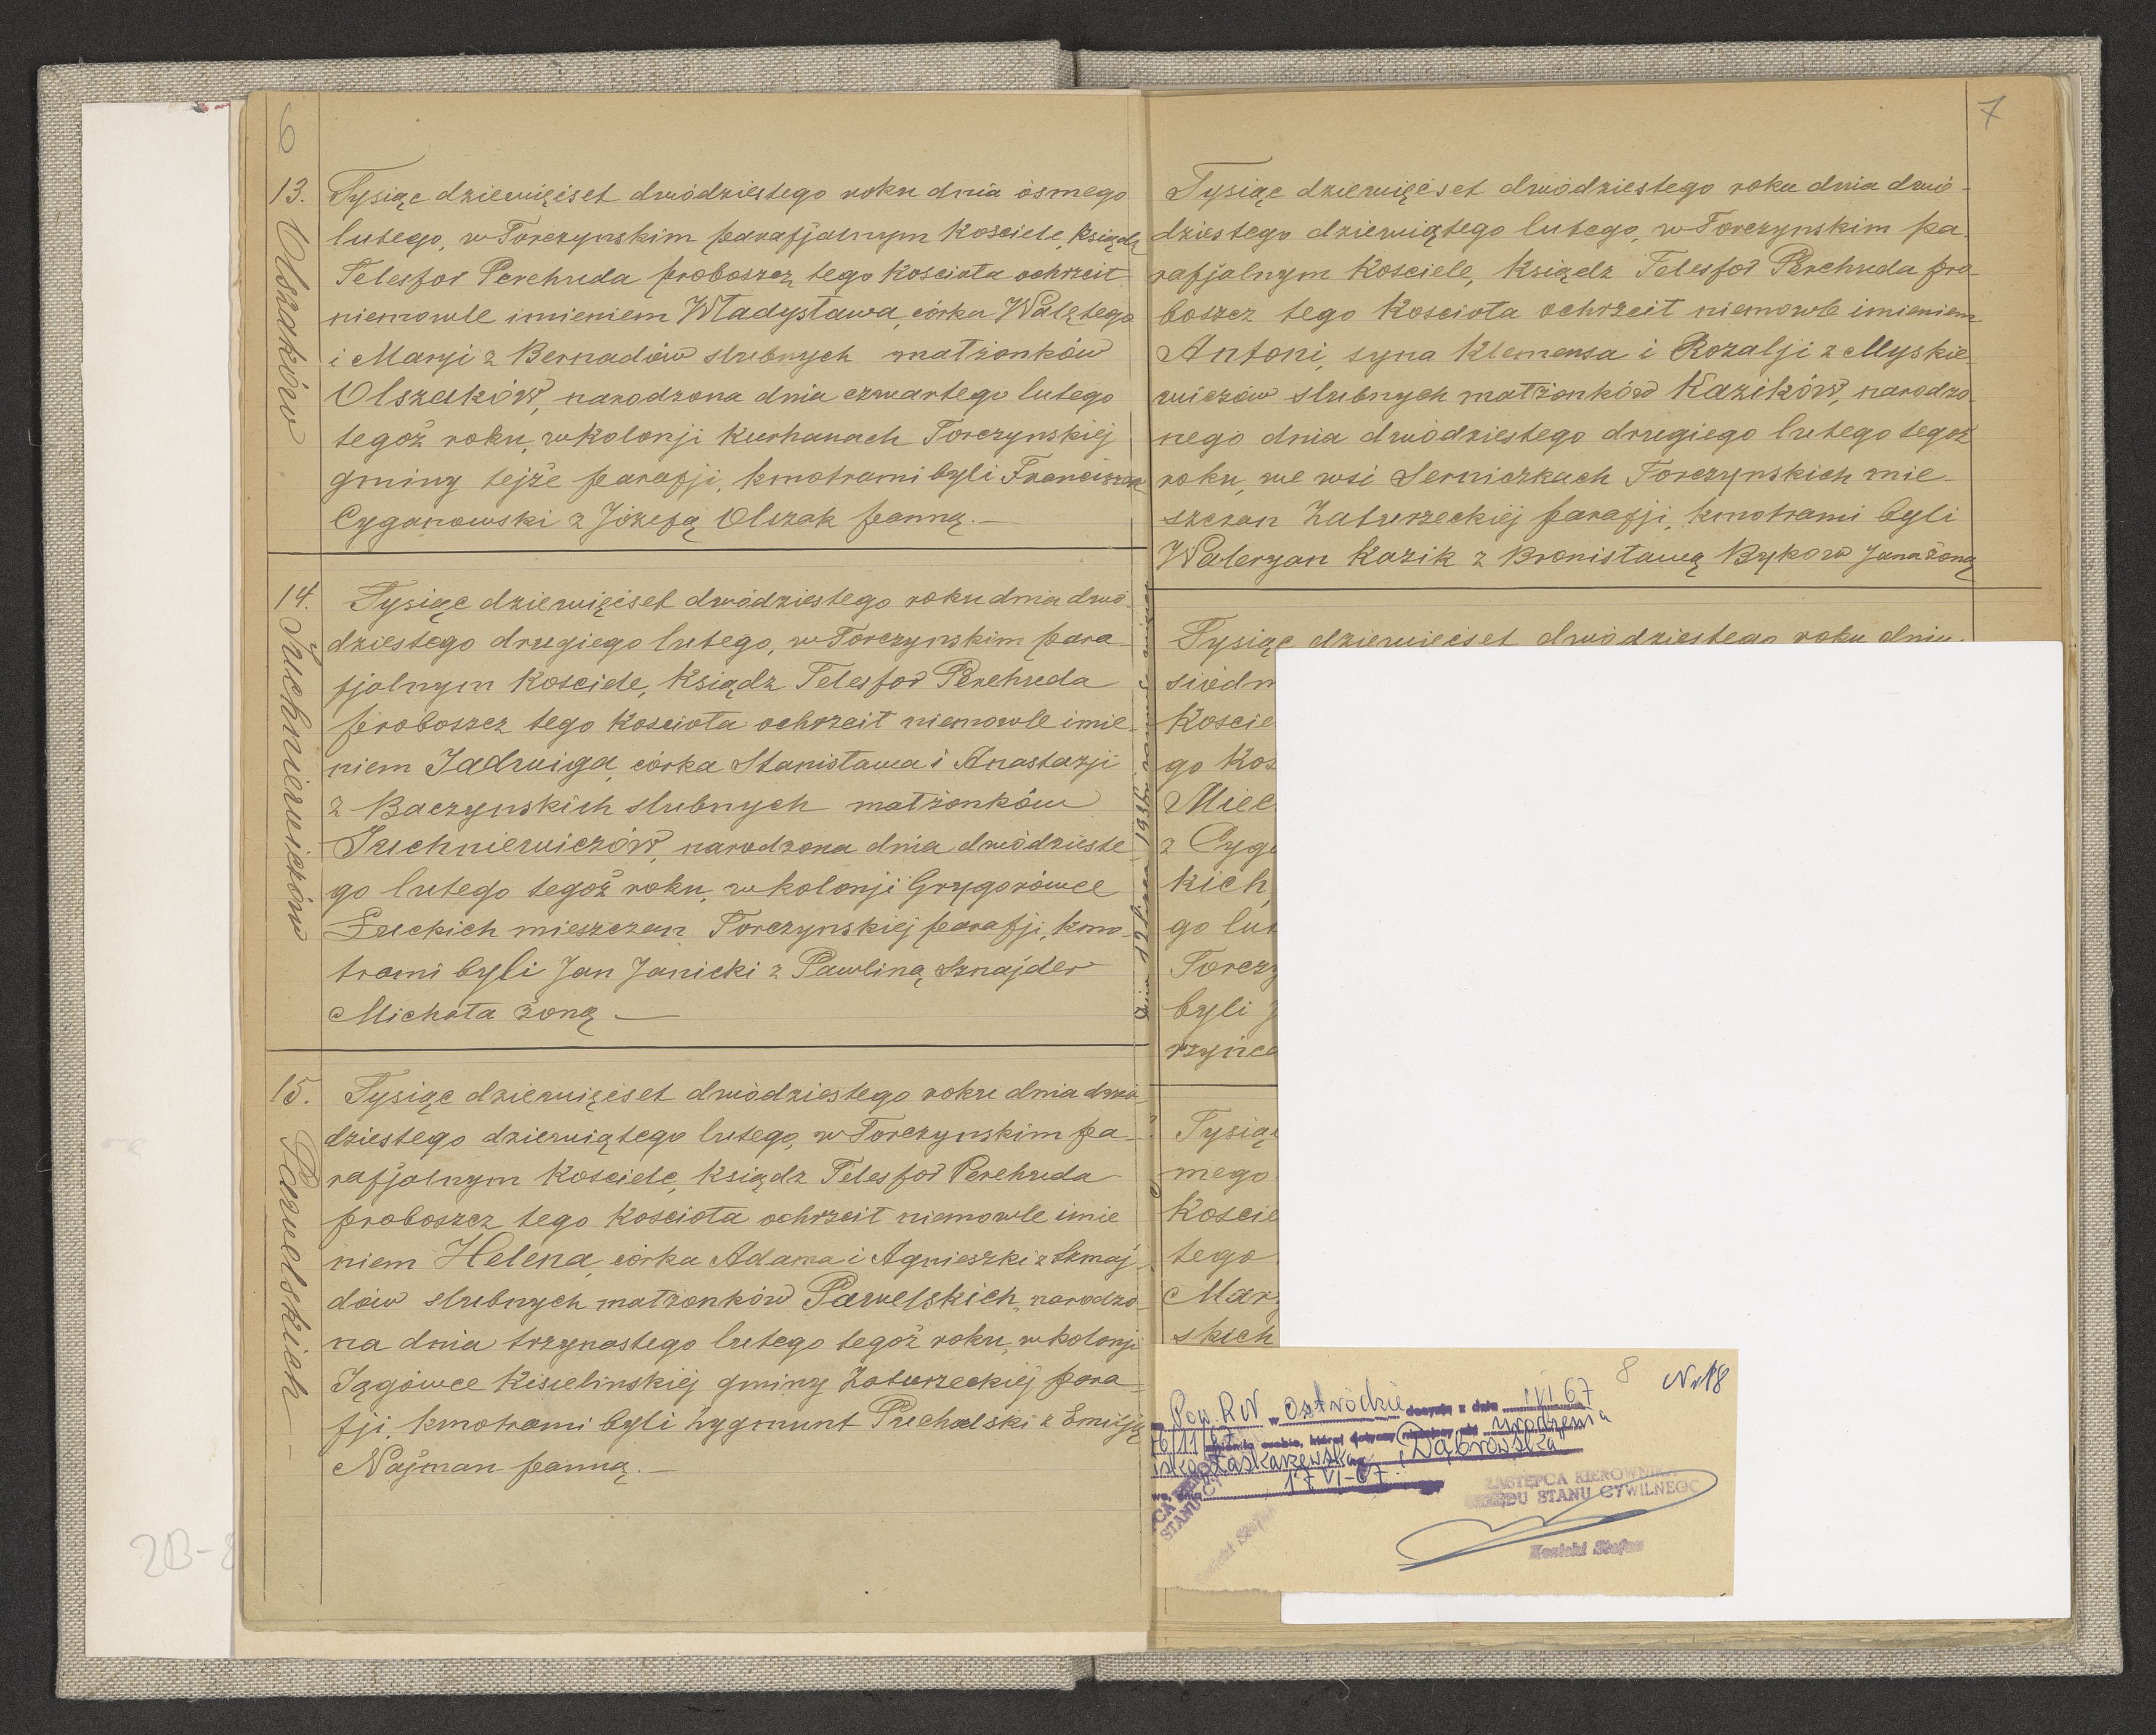 6
13.
Olszaków
Tysiąc dziewięćset dwódziestego roku dnia ósmego
lutego, w Torczynskim parafjalnym Kosciele, Ksiądz
Telesfor Perehuda proboszcz tego Kosciota ochrzcit
niemowle imieniem Wtadystawa, córka Walętego
i Maryi z Bernadiów slubnych matżonków
Olszaków, narodzona dnia czwartego lutego
tegoż roku, w kolonji Kurhanach Torczynskiéj
gminy tejże parafji, kmotrami byli Franciszek
Cyganowski z Józefą Olszak panną.—
14.
Juchniewiczów
Tysiąc dziewięćset dwódziestego roku dnia dwó-
dziestego drugiego lutego, w Torczynskim para-
fjalnym Kosciele, Ksiądz Telesfor Perehuda
proboszcz tego Kosciota ochrzcit niemowle imie-
niem Jadwiga, córka Stanistawa i Anastazji
z Baczynskich slubnych matżonków
Juchniewiczów, narodzona dnia dwódzieste-
go lutego tegoż roku, w kolonji Grygorówce
Łuckich mieszczan Torczynskiéj parafji, kmo-
trami byli Jan Janicki z Pawliną Sznajder
Michata żoną —
15.
Pawelskich
Tysiąc dziewięćset dwódziestego roku dnia dwó-
dziestego dziewiątego lutego, w Torczynskim pa-
rafjalnym Kosciele, Ksiądz Telesfor Perehuda
proboszcz tego Kosciota ochrzcit niemowle imie
niem Helena, córka Adama i Agnieszki z Szmaj-
dów slubnych matżonków Pawelskich, narodzo-
na dnia trzynastego lutego tegoż roku, w kolonji
Jągówce Kisielinskiéj gminy Zaturzeckiéj para-
fji, kmotrami byli Zygmunt Puchalski z Emilją
Najman panną.—
2B-8
7
Tysiąc dziewięćset dwódziestego roku dnia dwó-
dziestego dziewiątego lutego, w Torczynskim pa-
rafjalnym Kosciele, Ksiądz Telesfor Perehuda pro-
boszcz tego Kosciota ochrzcit niemowle imieniem
Antoni, syna Klemensa i Rozalji z Myskie-
wiczów slubnych matżonków Kazików, narodzo-
nego dnia dwódziestego drugiego lutego tegoż
roku, we wsi Serniczkach Torczynskich mie-
szczan Zaturzeckiéj parafji, kmotrami byli
Waleryan Kazik z Bronistawą Bykow Jana żoną
Tysiąc dziewięćset dwódziestego roku dnia
siódm
Koscie
go Kos
Miec
z Cyga
kich,
go lut
Torczy
byli J
rzyńca
Tysiąc
mego
Koscie
tego
Mary
skich
dnia 12 lipca 1938
8 Nr 18
Pow. R N w Ostródzie decyzją z dnia 1 VI 67
76/11/67 osobie, której dotyczy niniejszy akt urodzenia
Laskarzewska „Dąbrowska"
dnia 17 VI-67.
ZASTĘPCA KIEROWNIKA
URZĘDU STANU CYWILNEGO
STANU CY